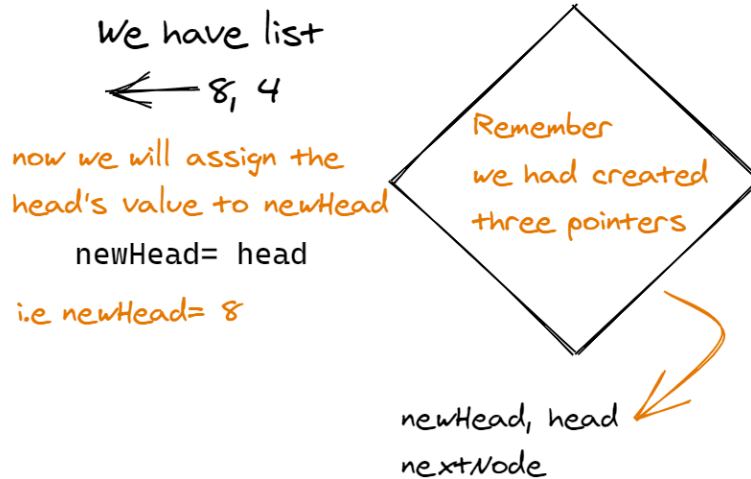 We have list
8, 4
now we will assign the
head's value to newHead
newHead= head
i.e newHead= 8
Remember
we had created
three pointers
newHead, head
nextNode